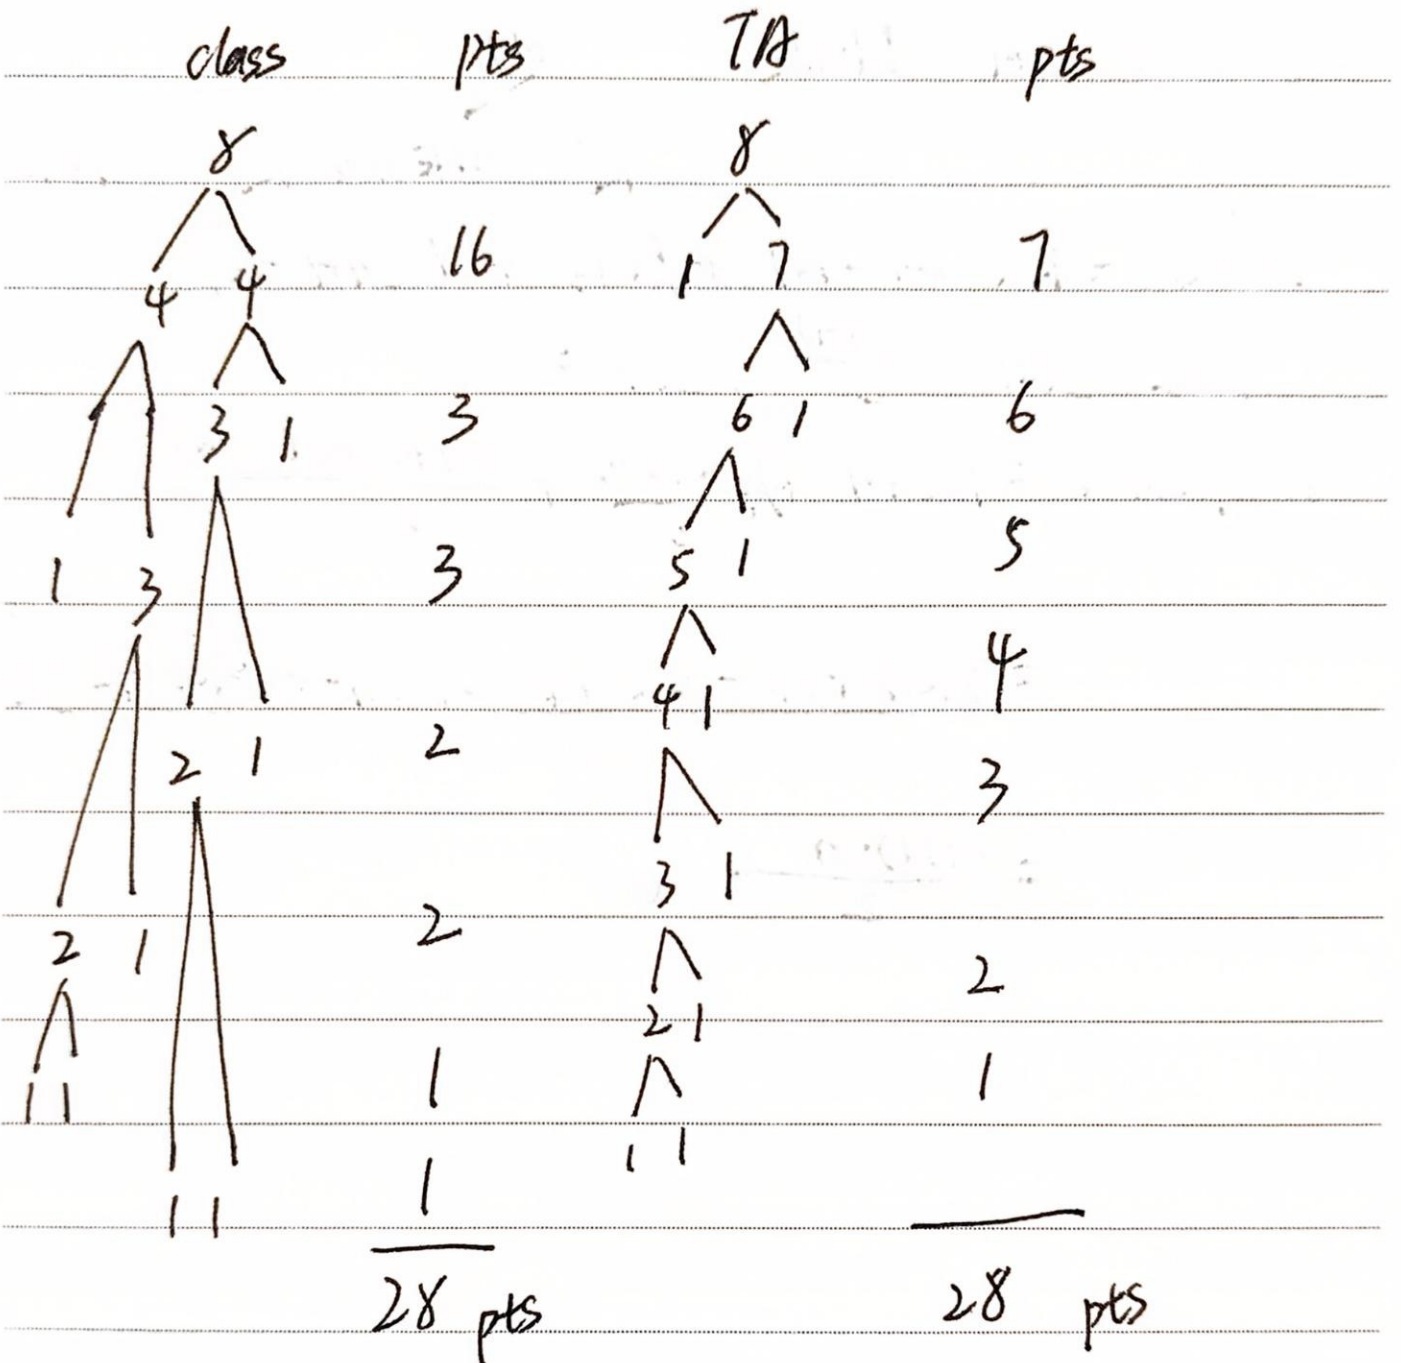 class pts TA pts
8 8
4 4 16 1 7 7
3 1 3 6 1 6
1 3 3 5 1 5
4 1 4
2 1 2 3
3 1
2 1 2 2
2 1
1 1 1 1
1 1
1 1 1
28 pts 28 pts